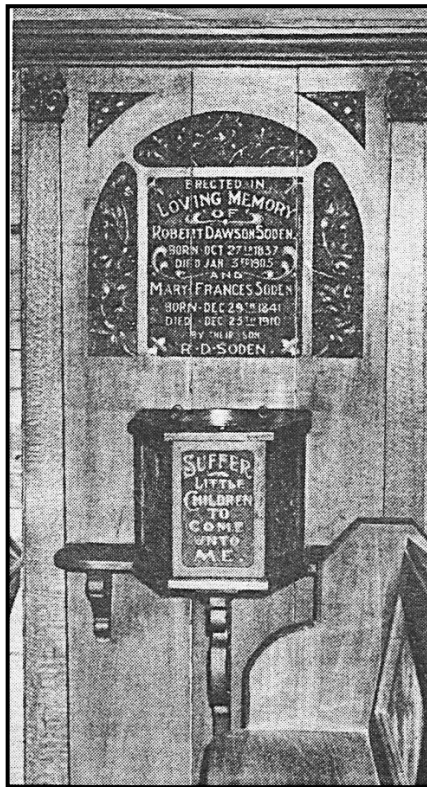 ERECTED IN
LOVING MEMORY
OF
ROBERT DAWSON SODEN.
BORN·OCT 27TH 1837
DIED JAN 3RD 1905
AND
MARY FRANCES SODEN
BORN-DEC 29TH 1841
DIED - DEC 25TH 1910
BY THEIR SON
R·D·SODEN.
SUFFER
LITTLE
CHILDREN
TO
COME
UNTO
ME.